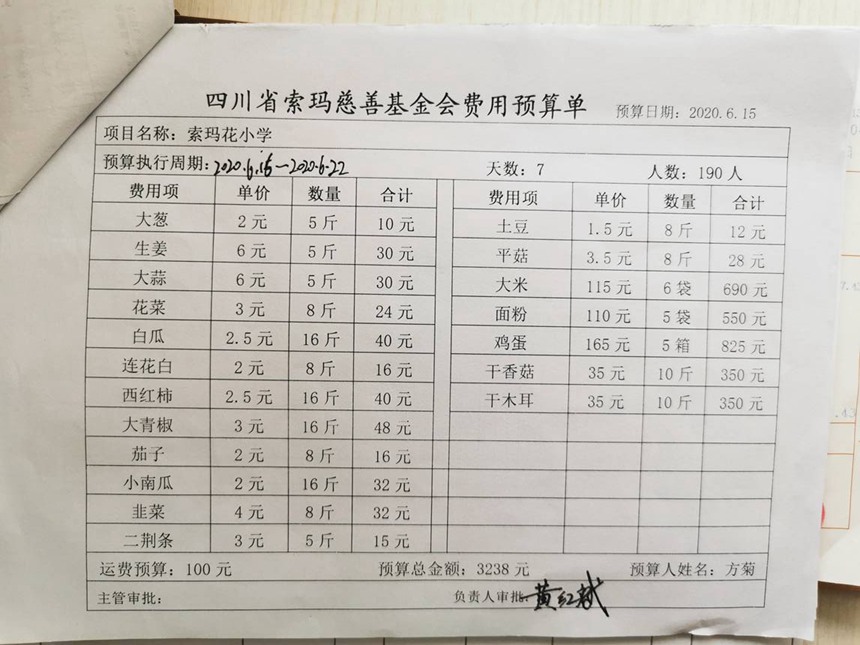 四川省索玛慈善基金会费用预算单 预算日期：2020.6.15
项目名称：索玛花小学
预算执行周期：2020.6.15—2020.6.22 天数：7 人数：190 人
费用项 单价 数量 合计 费用项 单价 数量 合计
大葱 2 元 5 斤 10 元 土豆 1.5 元 8 斤 12 元
生姜 6 元 5 斤 30 元 平菇 3.5 元 8 斤 28 元
大蒜 6 元 5 斤 30 元 大米 115 元 6 袋 690 元
花菜 3 元 8 斤 24 元 面粉 110 元 5 袋 550 元
白瓜 2.5 元 16 斤 40 元 鸡蛋 165 元 5 箱 825 元
连花白 2 元 8 斤 16 元 干香菇 35 元 10 斤 350 元
西红柿 2.5 元 16 斤 40 元 干木耳 35 元 10 斤 350 元
大青椒 3 元 16 斤 48 元
茄子 2 元 8 斤 16 元
小南瓜 2 元 16 斤 32 元
韭菜 4 元 8 斤 32 元
二荆条 3 元 5 斤 15 元
运费预算：100 元 预算总金额：3238 元 预算人姓名：方菊
主管审批： 负责人审批：黄红斌